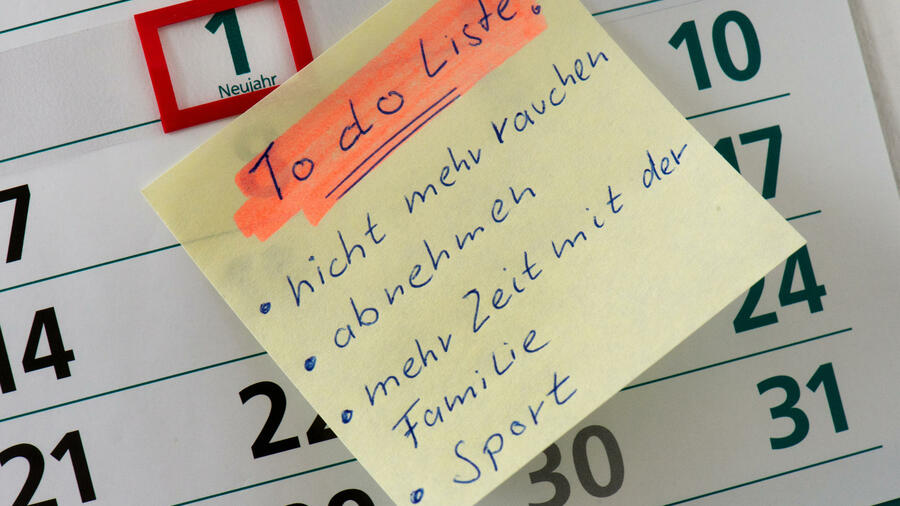 1
Neujahr
To do Liste
• nicht mehr rauchen
• abnehmen
• mehr Zeit mit der
Familie
• Sport
7
10
14
17
21
22
24
30
31